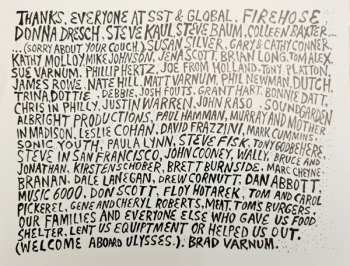 THANKS, EVERYONE AT SST & GLOBAL. FIREHOSE.
DONNA DRESCH. STEVE KAUL. STEVE BAUM. COLLEEN BAXTER...
...(SORRY ABOUT YOUR COUCH.) SUSAN SILVER. GARY & CATHY CONNER.
KATHY MOLLOY. MIKE JOHNSON. JENA SCOTT. BRIAN LONG. TOM ALEX.
SUE VARNUM. PHILLIP HERTZ. JOE FROM HOLLAND. TONY PLATION.
JAMES ROWE. NATE HILL. MATT VARNUM. PHIL NEWMAN. DUTCH.
TRINA DOTTIE. DEBBIE. JOSH FOUTS. GRANT HART. BONNIE DATT.
CHRIS IN PHILLY. JUSTIN WARREN. JOHN RASO. SOUNDGARDEN
ALBRIGHT PRODUCTIONS. PAUL HAMMAN. MURRAY AND MOTHER
IN MADISON. LESLIE COHAN. DAVID FRAZZINI. MARK CUMMINGS
SONIC YOUTH. PAULA LYNN. STEVE FISK. TONY GODBEHERE.
STEVE IN SAN FRANCISCO. JOHN COONEY. WALLY. BRUCE AND
JONATHAN. KIRSTEN SCHOBER. BRETT BURNSIDE. MARC CHEYNE-
BRANAN. DALE LANEGAN. DREW CORNUTT. DAN ABBOTT.
MUSIC 6000. DON SCOTT. FLOY HOTAREK. TOM AND CAROL
PICKEREL. GENE AND CHERYL ROBERTS. MEAT. TOM'S BURGERS
OUR FAMILIES AND EVERYONE ELSE WHO GAVE US FOOD
SHELTER. LENT US EQUIPTMENT OR HELPED US OUT.
(WELCOME ABOARD ULYSSES.). BRAD VARNUM.